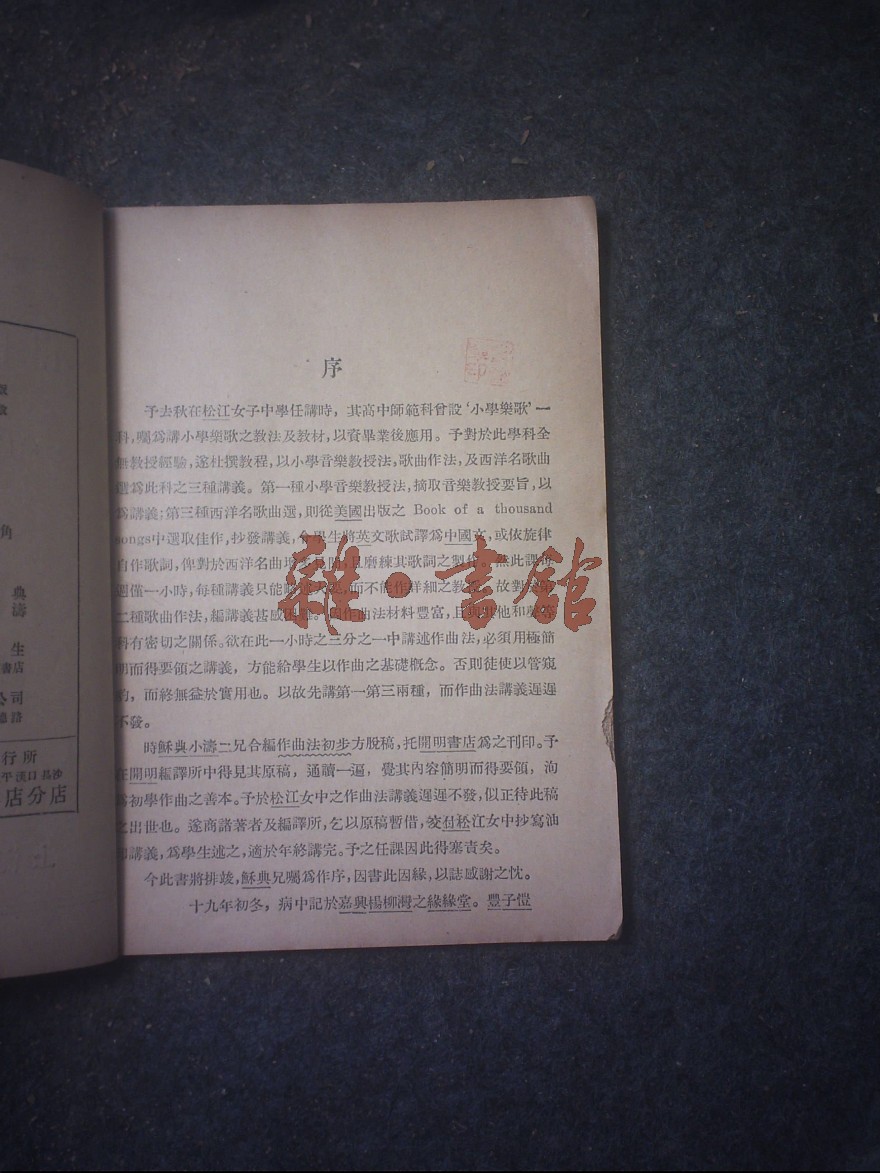 序
予去秋在松江女子中學任講時，其高中師範科曾設‘小學樂歌’一
科，囑爲講小學樂歌之教法及教材，以資畢業後應用。予對於此學科全
無教授經驗，遂杜撰教程，以小學音樂教授法，歌曲作法，及西洋名歌曲
選爲此科之三種講義。第一種小學音樂教授法，摘取音樂教授要旨，以
爲講義；第三種西洋名歌曲選，則從美國出版之 Book of a thousand
songs中選取佳作，抄發講義，令學生將英文歌試譯爲中國文，或依旋律
自作歌詞，俾對於西洋名曲 且磨練其歌詞之製作。然此課每
週僅一小時，每種講義只能 而不能作詳細之教授。故對於第
二種歌曲作法，編講義甚感困難。因作曲法材料豐富，且與其他和聲等
科有密切之關係。欲在此一小時之三分之一中講述作曲法，必須用極簡
明而得要領之講義，方能給學生以作曲之基礎概念。否則徒使以管窺
豹，而終無益於實用也。以故先講第一第三兩種，而作曲法講義遲遲
不發。
時穌典小濤二兄合編作曲法初步方脫稿，托開明書店爲之刊印。予
在開明編譯所中得見其原稿，通讀一遍，覺其內容簡明而得要領，洵
爲初學作曲之善本。予於松江女中之作曲法講義遲遲不發，似正待此稿
之出世也。遂商諸著者及編譯所，乞以原稿暫借，交付松江女中抄寫油
印講義，爲學生述之，適於年終講完。予之任課因此得塞責矣。
今此書將排竣，穌典兄囑爲作序，因書此因緣，以誌感謝之忱。
十九年初冬，病中記於嘉興楊柳灣之緣緣堂。豐子愷
雜·書館
角
典
濤
生
書店
公司
德路
行所
平漢口長沙
店分店